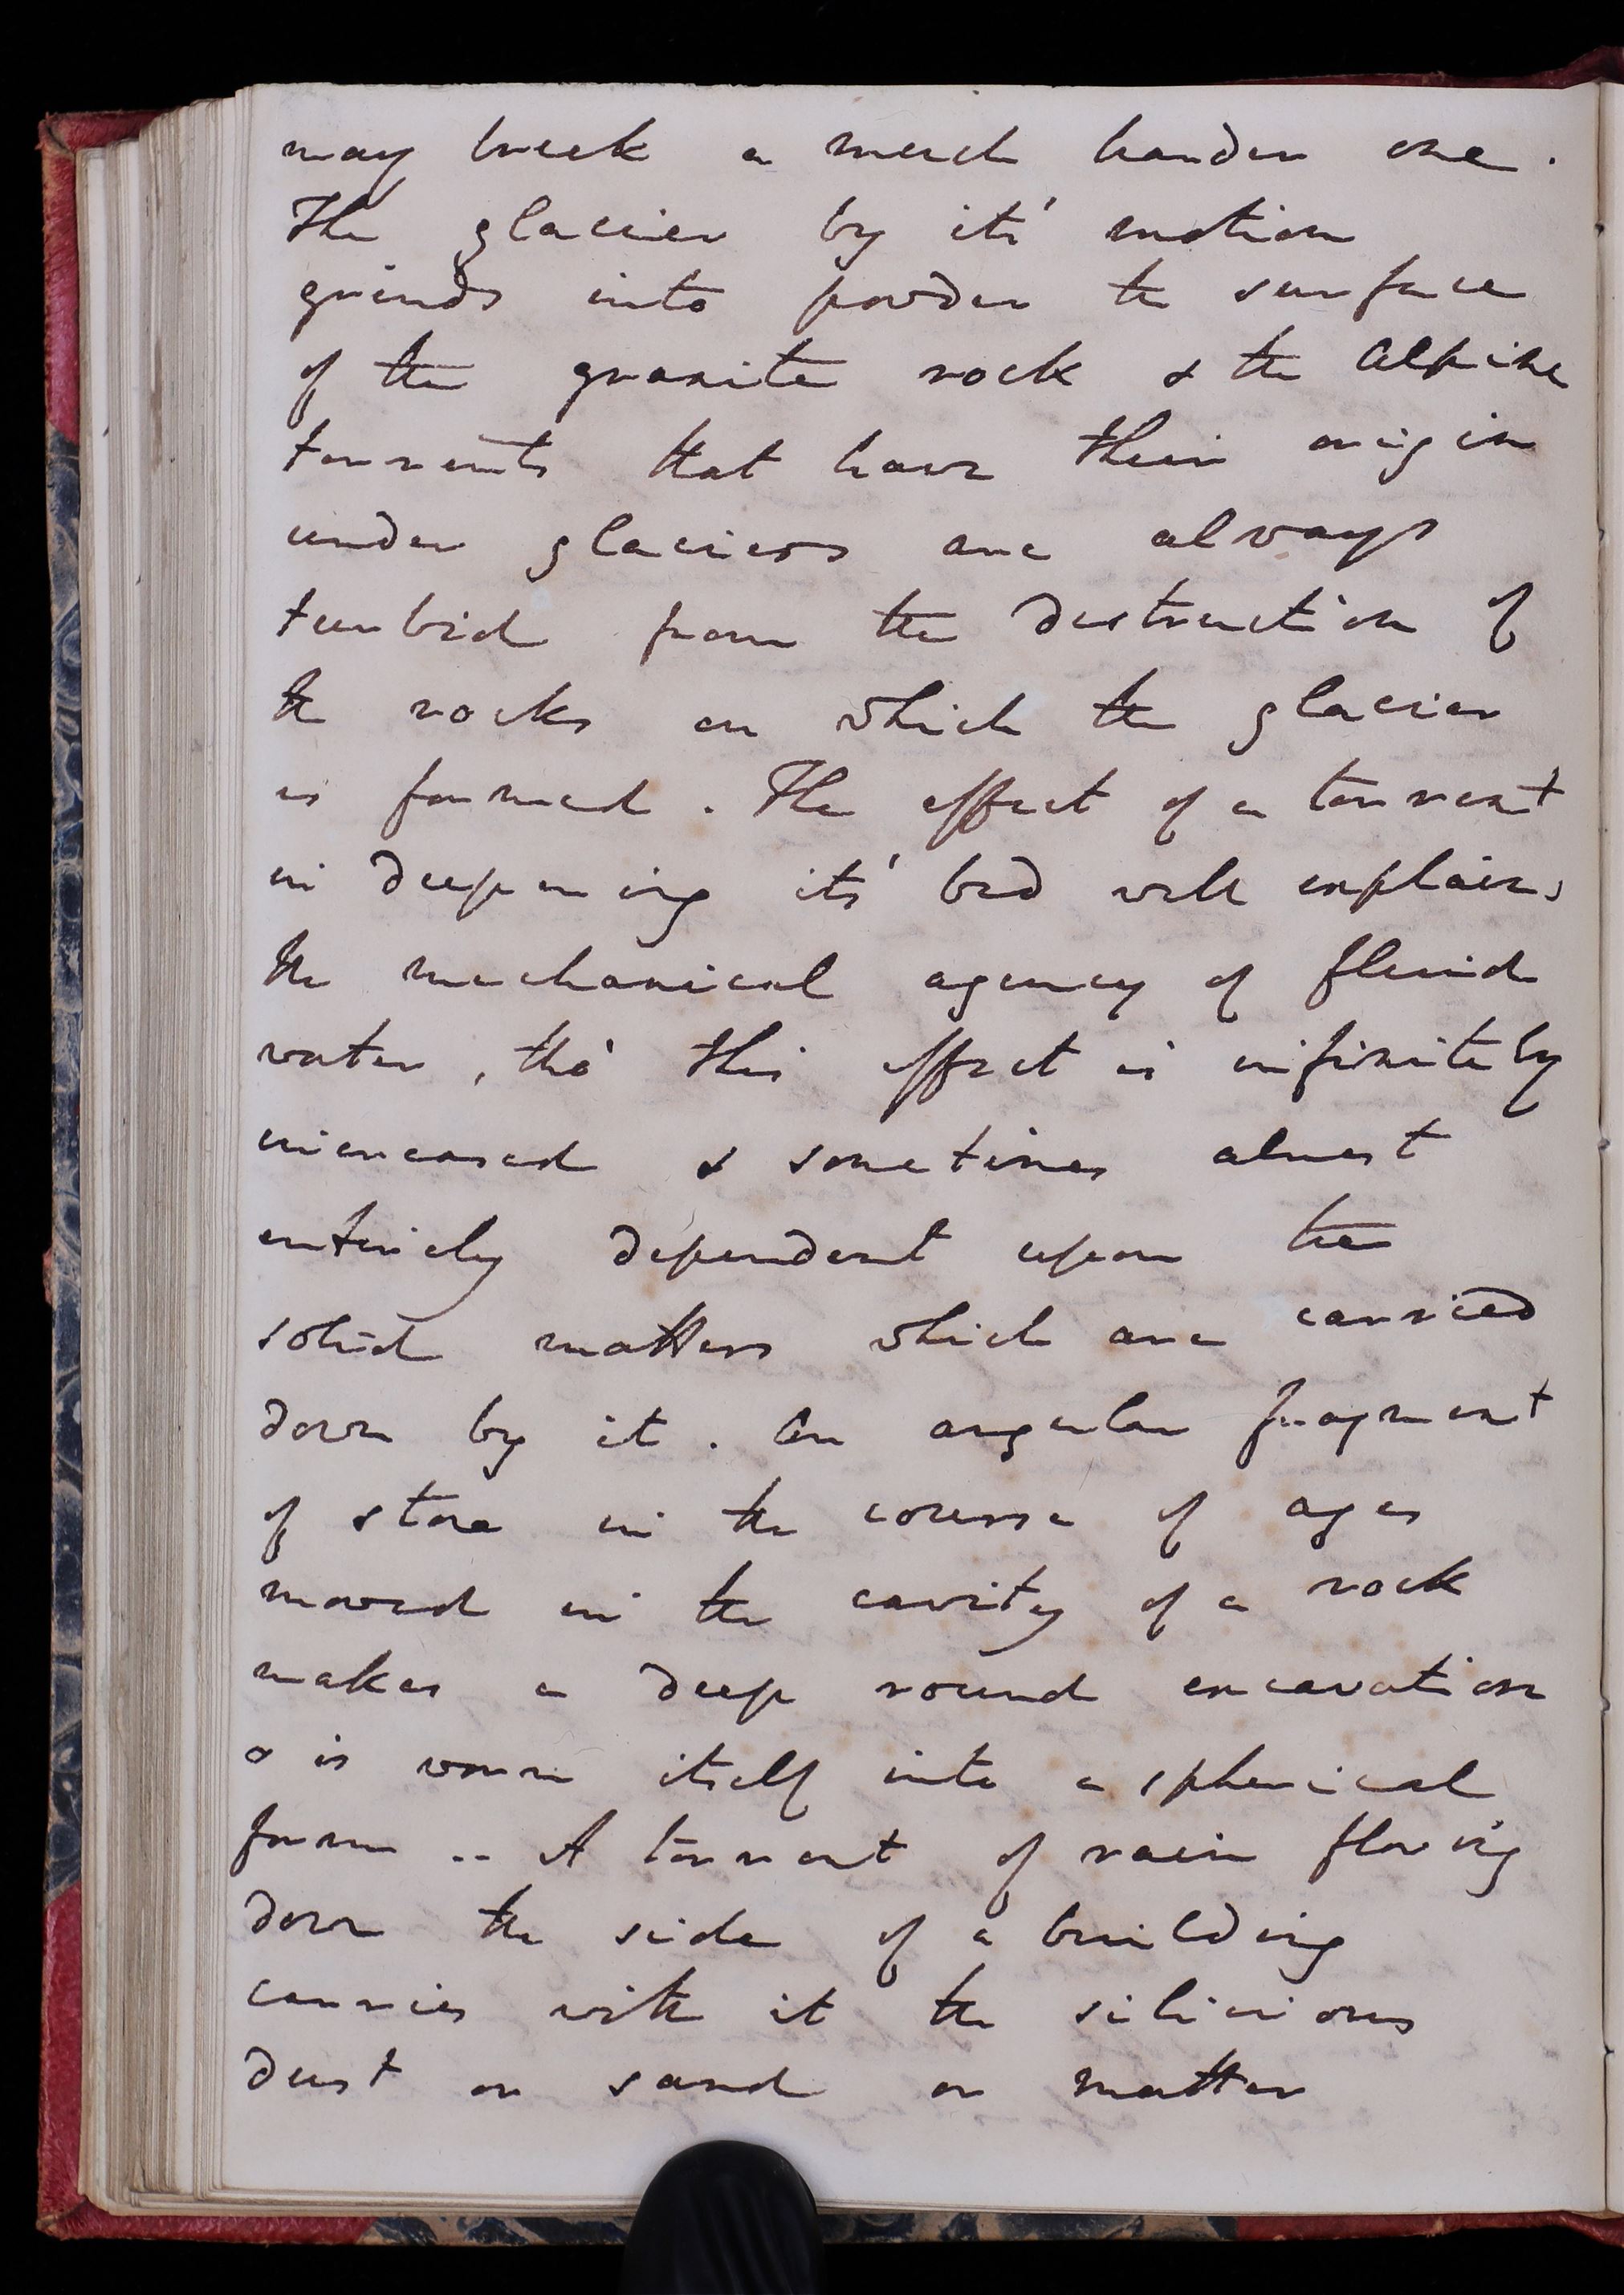 may break a much harder one.
The glacier by its' motion
grinds into powder the surface
of the granite rock & the Alpine
torrents that have their origin
under glaciers are always
turbid from the destruction of
the rocks on which the glacier
is formed. The effect of a torrent
in deepening its' bed well explains
the mechanical agency of fluid
water, tho' this effect is infinitely
increased & sometimes almost
entirely dependent upon the
solid matters which are carried
down by it. An angular fragment
of stone in the course of ages
moved in the cavity of a rock
makes a deep round excavation
& is worn itself into a spherical
form .. A torrent of rain flowing
down the side of a building
carries with it the silicious
dust or sand or matter